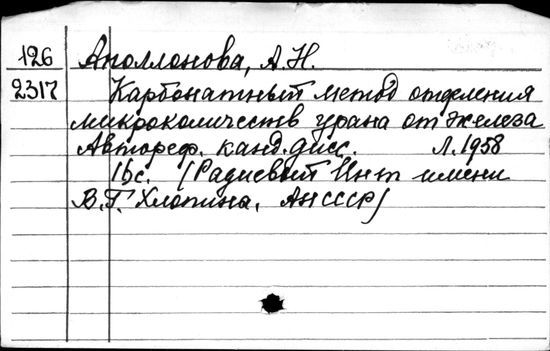 126 Аполлонова, А.Н.
2317 Карбонатный метод отделения
микроколичеств урана от железа
Автореф. канд. дисс. Л. 1958
16с. (Радиевый Инт имени
В.Г. Хлопина, АН СССР)